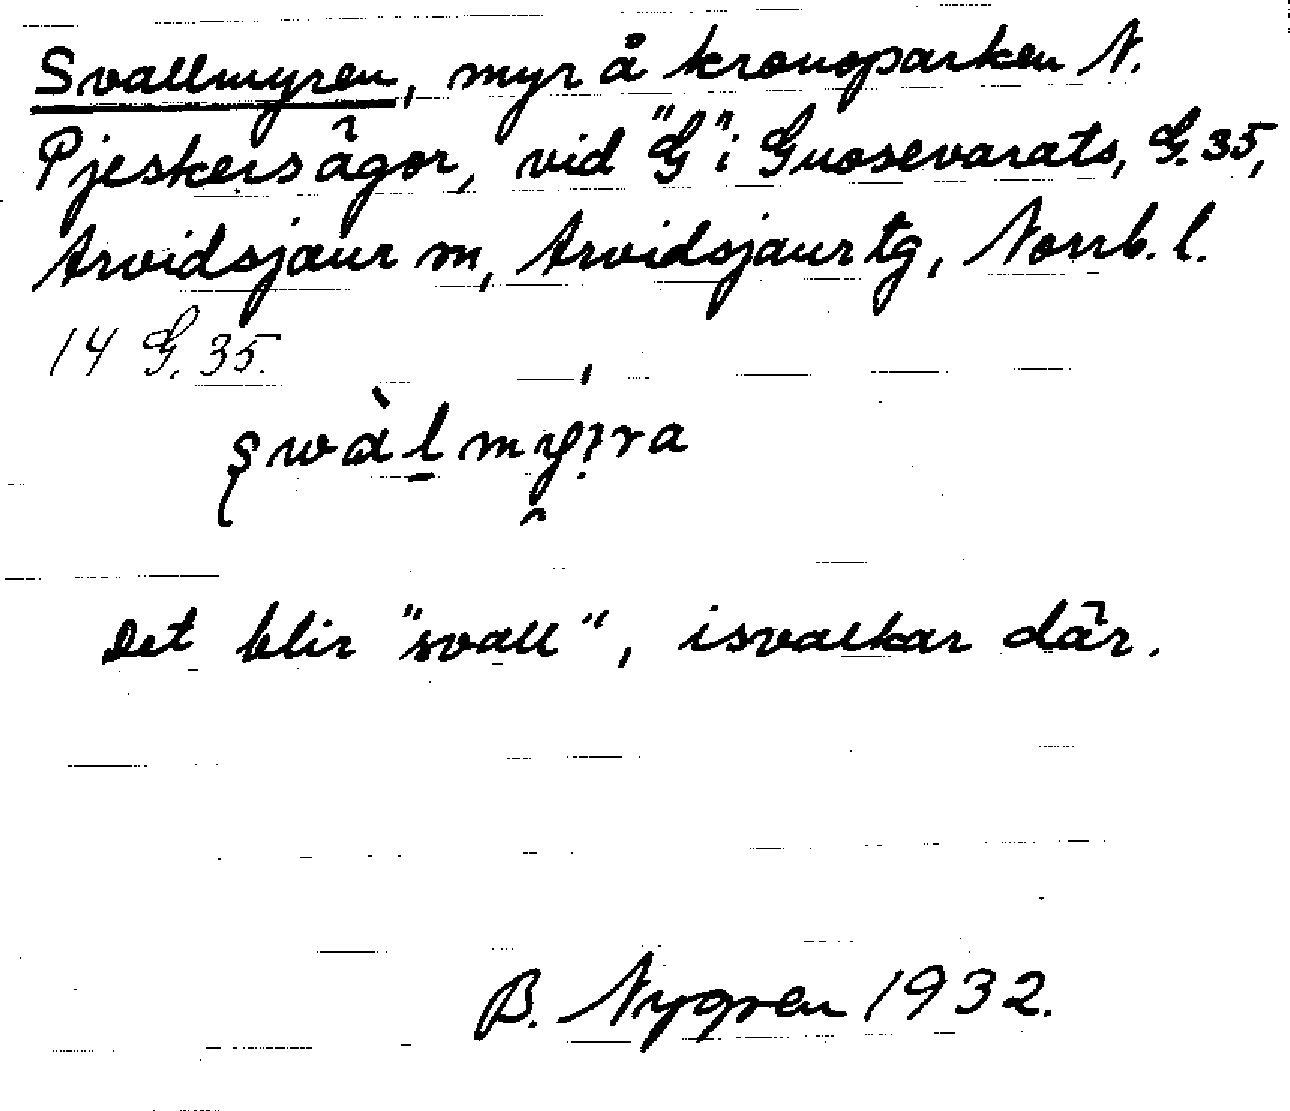 Svallmyren, myr å kronoparken N.
Pjeskersägor, vid "G" i Guosevarats, G. 35,
Arvidsjaur m, Arvidsjaur tg, Norrb. l.
14 G. 35.
Det blir "svall", isvalkar där.
B. Nygren 1932.